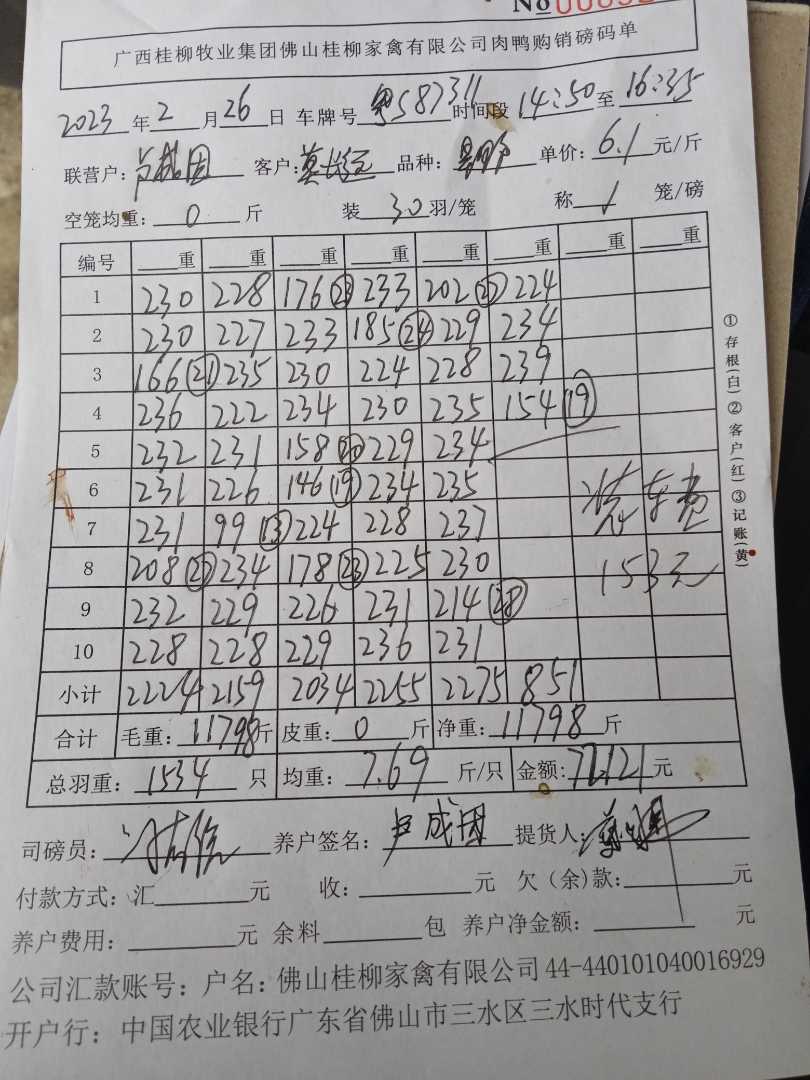 No
广西桂柳牧业集团佛山桂柳家禽有限公司肉鸭购销磅码单
2023年2月26日 车牌号 粤S87311 时间段 14:50至16:35
联营户: 客户: 品种: 单价: 6.1 元/斤
空笼均重: 0 斤 装 30 羽/笼 称 1 笼/磅
编号 重 重 重 重 重 重 重 重
1 230 228 176 23 233 202 27 224
2 230 227 233 185 24 229 234
3 166 21 235 230 224 228 239
4 236 222 234 230 235 154 19
5 232 231 158 20 229 234
6 231 226 146 19 234 235 装车费
7 231 99 13 224 228 237
8 208 27 234 178 23 225 230 153元
9 232 229 226 231 214 28
10 228 228 229 236 231
小计 2224 2159 2034 2255 2275 851
合计 毛重: 11798 斤 皮重: 0 斤 净重: 11798 斤
总羽重: 1534 只 均重: 7.69 斤/只 金额: 72121 元
司磅员: 养户签名: 卢成团 提货人:
付款方式: 汇 元 收: 元 欠(余)款: 元
养户费用: 元 余料 包 养户净金额: 元
公司汇款账号: 户名: 佛山桂柳家禽有限公司 44-440101040016929
开户行: 中国农业银行广东省佛山市三水区三水时代支行
①存根(白)②客户(红)③记账(黄)